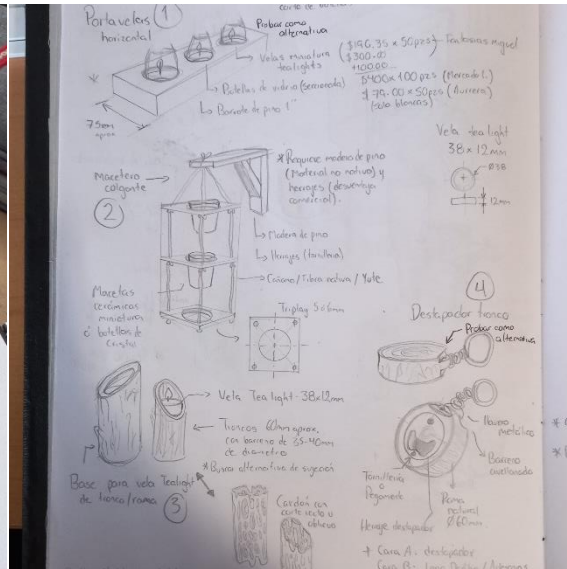 Portavelas
horizontal
1
Probar como
alternativa
Velas miniatura
tealights
($196.35 x 50pzs)
$300.00
$400 x 100 pzs (Mercado L.)
$79.00 x 50pzs (Aurrera)
(solo blancas)
Botellas de vidrio
Barrote de pino 1"
75cm
aprox
Vela tealight
38 x 12mm
Ø38
12mm
Macetero
colgante
2
*Requiere madera de pino
(Material no nativo) y
herrajes (desventaja
comercial).
Madera de pino
Herrajes
Cáñamo / Fibra nativa / Yute.
Macetas
cerámicas
miniaturas
ó botellas de
cristal
Triplay 5 ó 6mm
4
Destapador tronco
Probar como
alternativa
Vela Tea light 38x12mm
Troncos 60mm aprox.
con barreno de 35-40mm
de diametro
*Buscar alternativa de sujeción
Base para vela Tealight
de tronco/rama
3
Cardón con
corte recto u
oblicuo
Llavero
metálico
Barreno
avellanado
Tornillería
o
Pegamento
Rama
natural
Ø60mm
Herraje destapador
* Cara A: destapador